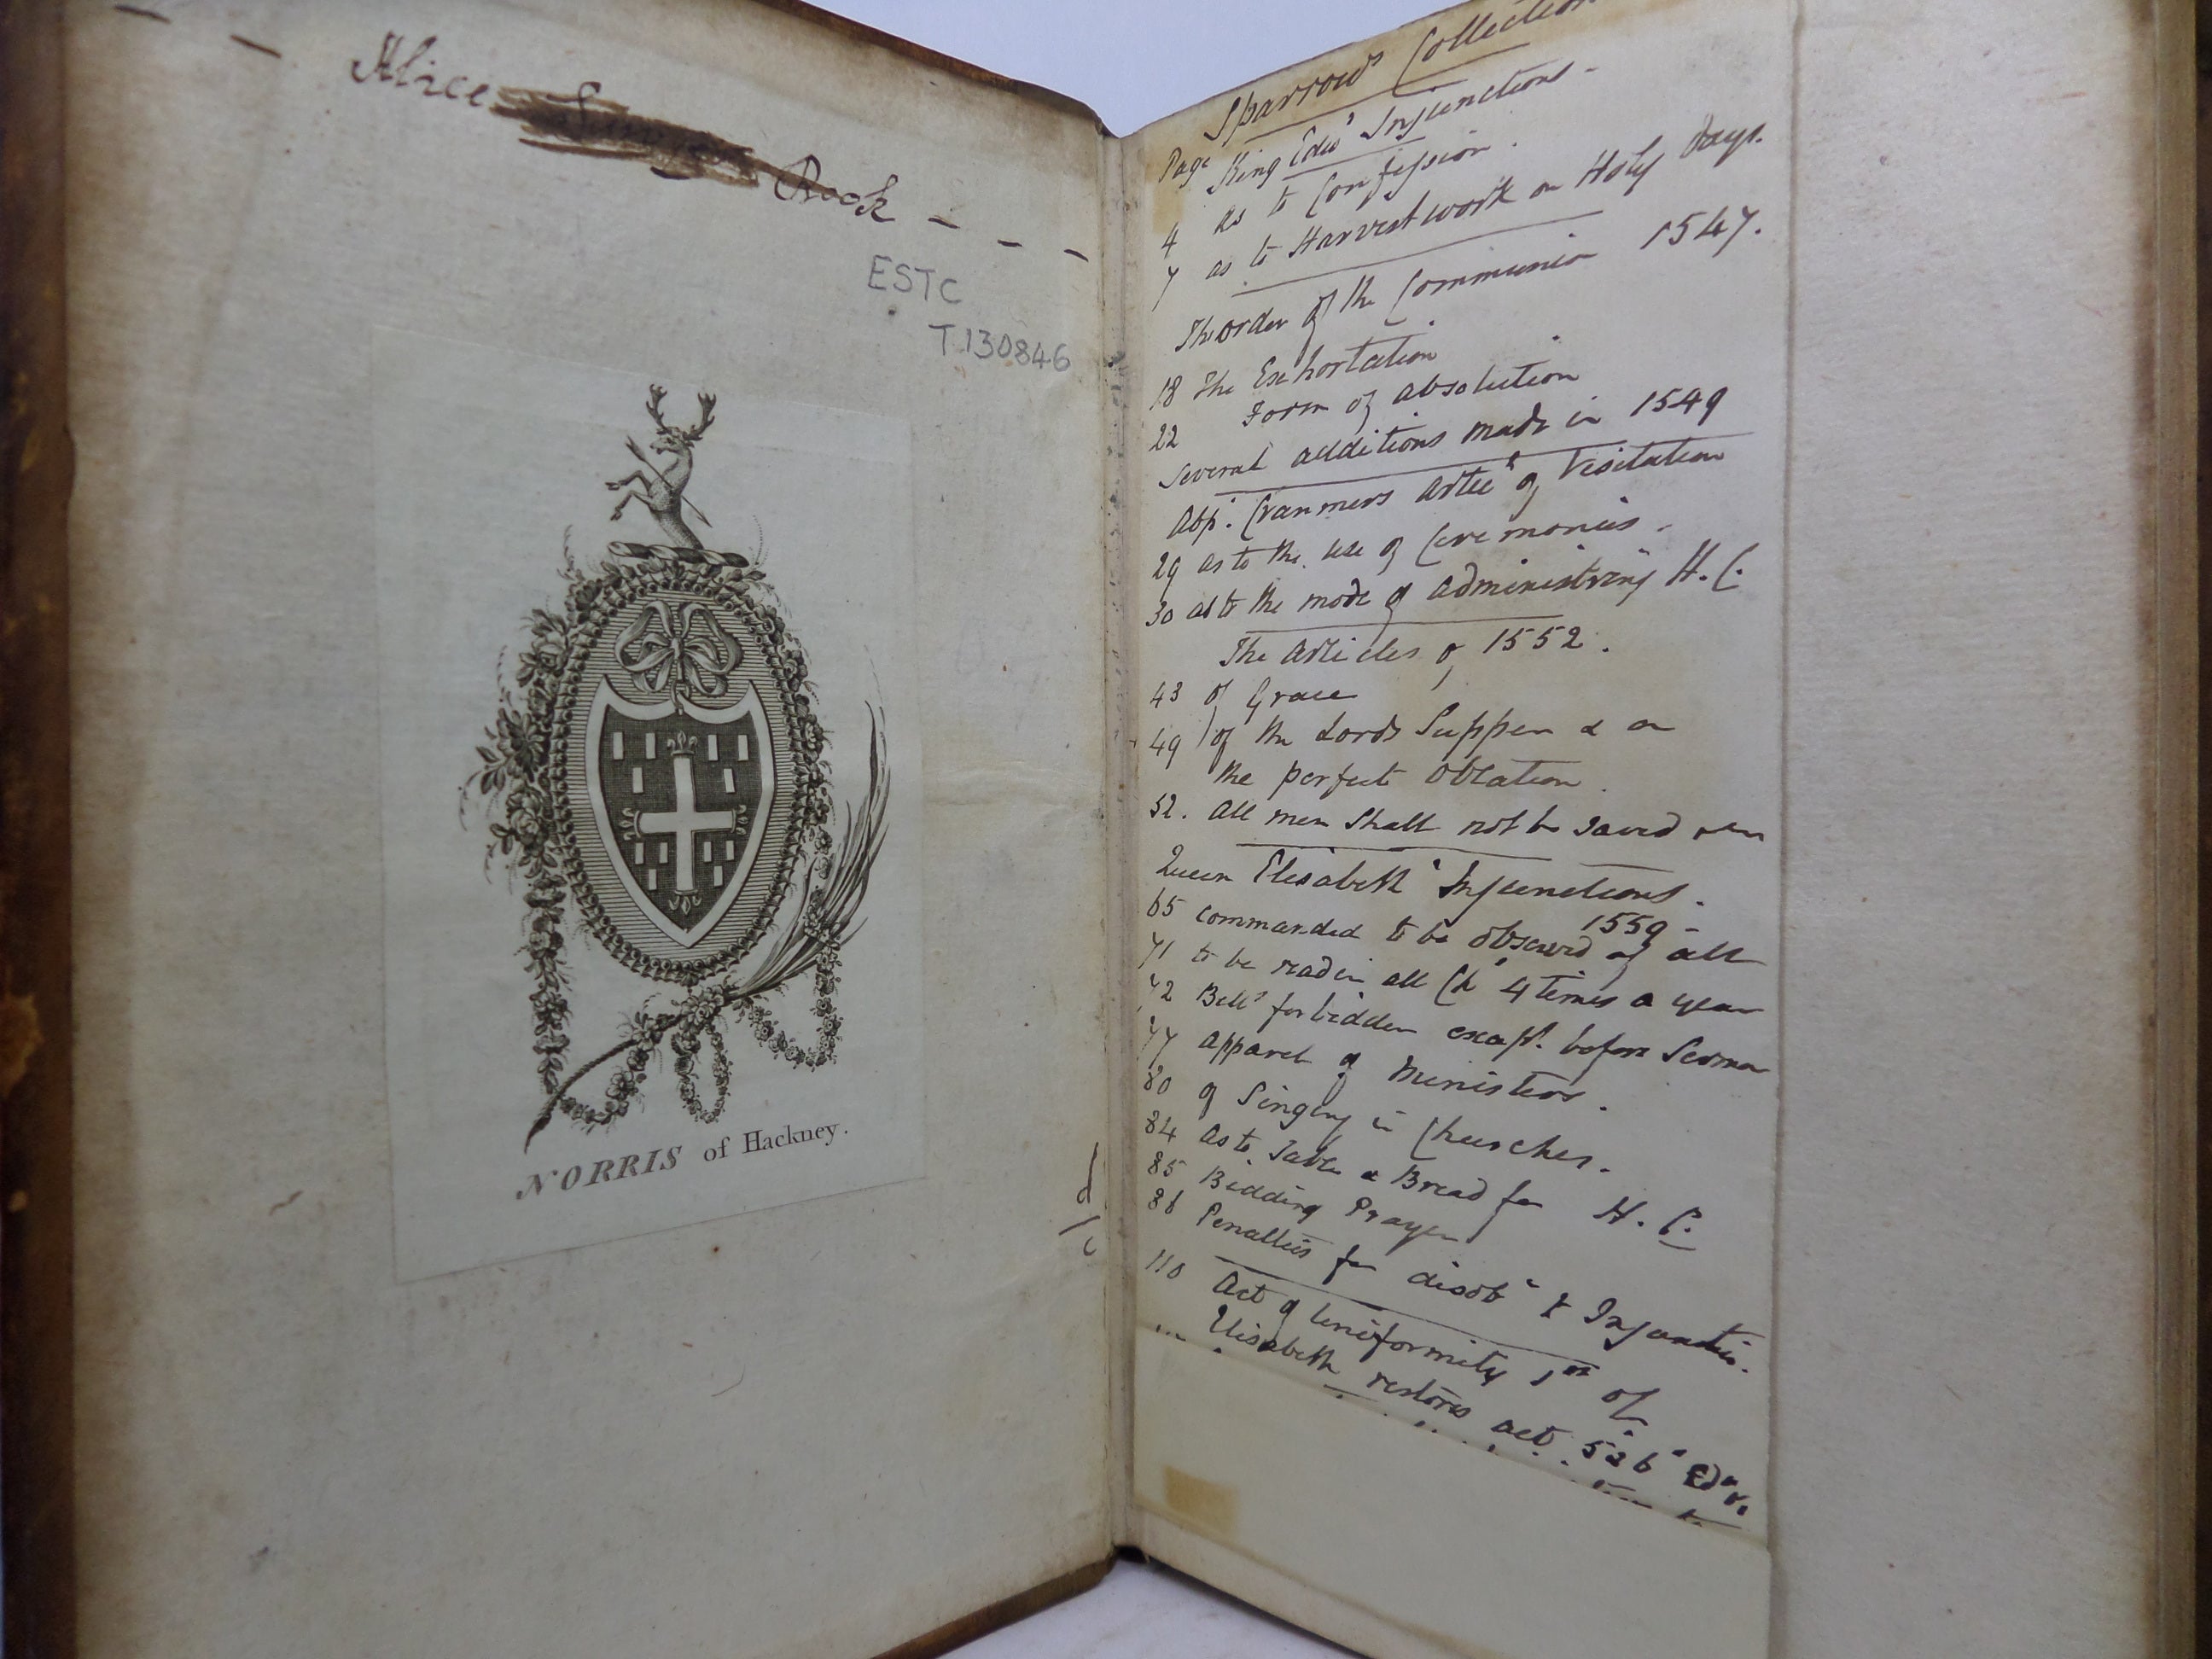 Alice Rook
ESTC
T.130846
NORRIS of Hackney.
d/c
Sparrow's Collection
Page King Edw^s Injunctions -
4 as to Confession .
7 as to Harvest work on Holy days.
The order of the Communion 1547.
18 The Exhortation
22 Form of absolution
Several additions made in 1549
Abp. Cranmers Artic^s of Visitation
29 as to the use of Ceremonies -
30 as to the mode of administring H. C.
The Articles of 1552 .
43 of Grace
49 of the Lords Supper & on
the perfect Oblation .
52. All men shall not be saved
Queen Elisabeth^s Injunctions .
1559 -
65 commanded to be observed of all
71 to be read in all Ch^s 4 times a year
72 Bell^s forbidden except. before Sermon
77 apparel of Ministers .
80 of Singing in Churches .
84 As to Table & Bread for H. C.
85 Bidding Prayer
86 Penalties for disob^e Injunctio.
110 Act of Uniformity 1st of
Elisabeth restores act. 5 & 6 Edw. V.